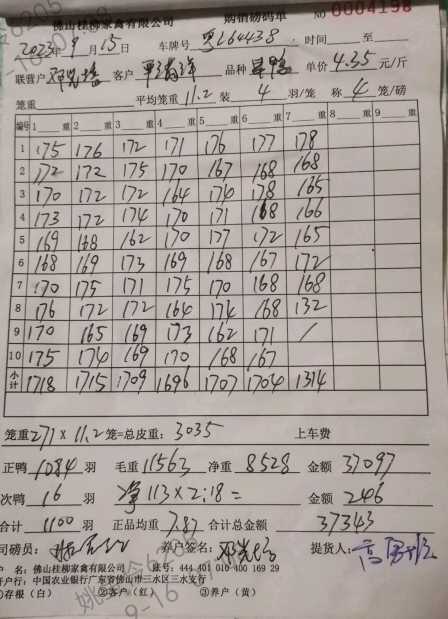 佛山桂柳家禽有限公司 购销磅码单 NO 0004198
2023年9月15日 车牌号 粤L64438 时间 至
联营户 客户 品种 单价 4.35 元/斤
笼重 平均笼重 11.2 装 4 羽/笼 称 4 笼/磅
编号 1 重 2 重 3 重 4 重 5 重 6 重 7 重 8 重 9 重
1 175 176 172 171 176 177 178
2 172 172 175 170 167 168 168
3 170 172 172 164 174 178 165
4 173 172 174 170 171 168 166
5 169 168 162 170 177 172 165
6 168 169 173 169 168 167 172
7 170 175 171 175 170 168 168
8 176 172 172 164 174 168 132
9 170 165 169 173 162 171 /
10 175 174 169 170 168 167
小计 1718 1715 1709 1696 1707 1704 1314
笼重 271 × 11.2 笼=总皮重: 3035 上车费
正鸭 1084 羽 毛重 11563 净重 8528 金额 37097
次鸭 16 羽 净 113×2.18= 金额 246
合计 1100 羽 正品均重 7.87 合计总金额 37343
司磅员: 养户签名: 提货人:
户 名: 佛山桂柳家禽有限公司 账号: 444 401 010 400 169 29
开户行: 中国农业银行广东省佛山市三水区三水支行
①存根(白) ②客户(红) ③养户(黄)